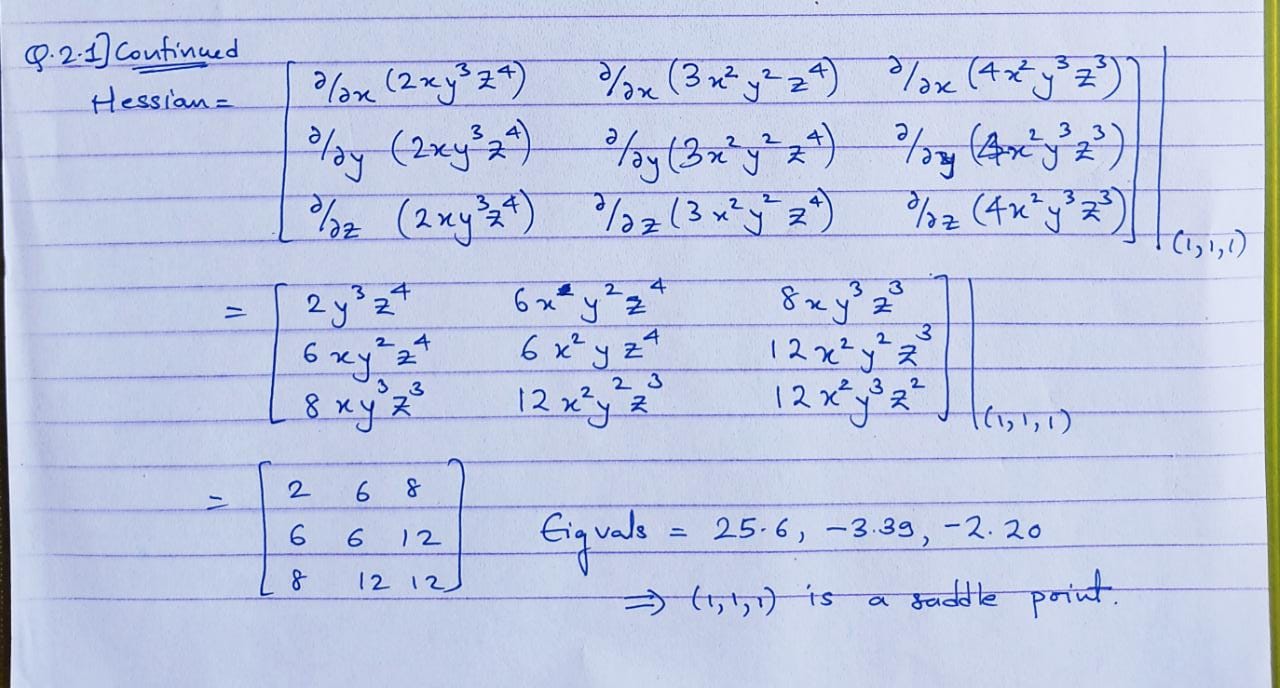 Q.2.1] Continued
Hessian = [ ∂/∂x (2xy³z⁴) ∂/∂x (3x²y²z⁴) ∂/∂x (4x²y³z³)
∂/∂y (2xy³z⁴) ∂/∂y (3x²y²z⁴) ∂/∂y (4x²y³z³)
∂/∂z (2xy³z⁴) ∂/∂z (3x²y²z⁴) ∂/∂z (4x²y³z³) ] |(1,1,1)
= [ 2y³z⁴ 6xy²z⁴ 8xy³z³
6xy²z⁴ 6x²yz⁴ 12x²y²z³
8xy³z³ 12x²y²z³ 12x²y³z² ] |(1,1,1)
= [ 2 6 8
6 6 12 Eigvals = 25.6, -3.39, -2.20
8 12 12 ]
⇒ (1,1,1) is a saddle point.